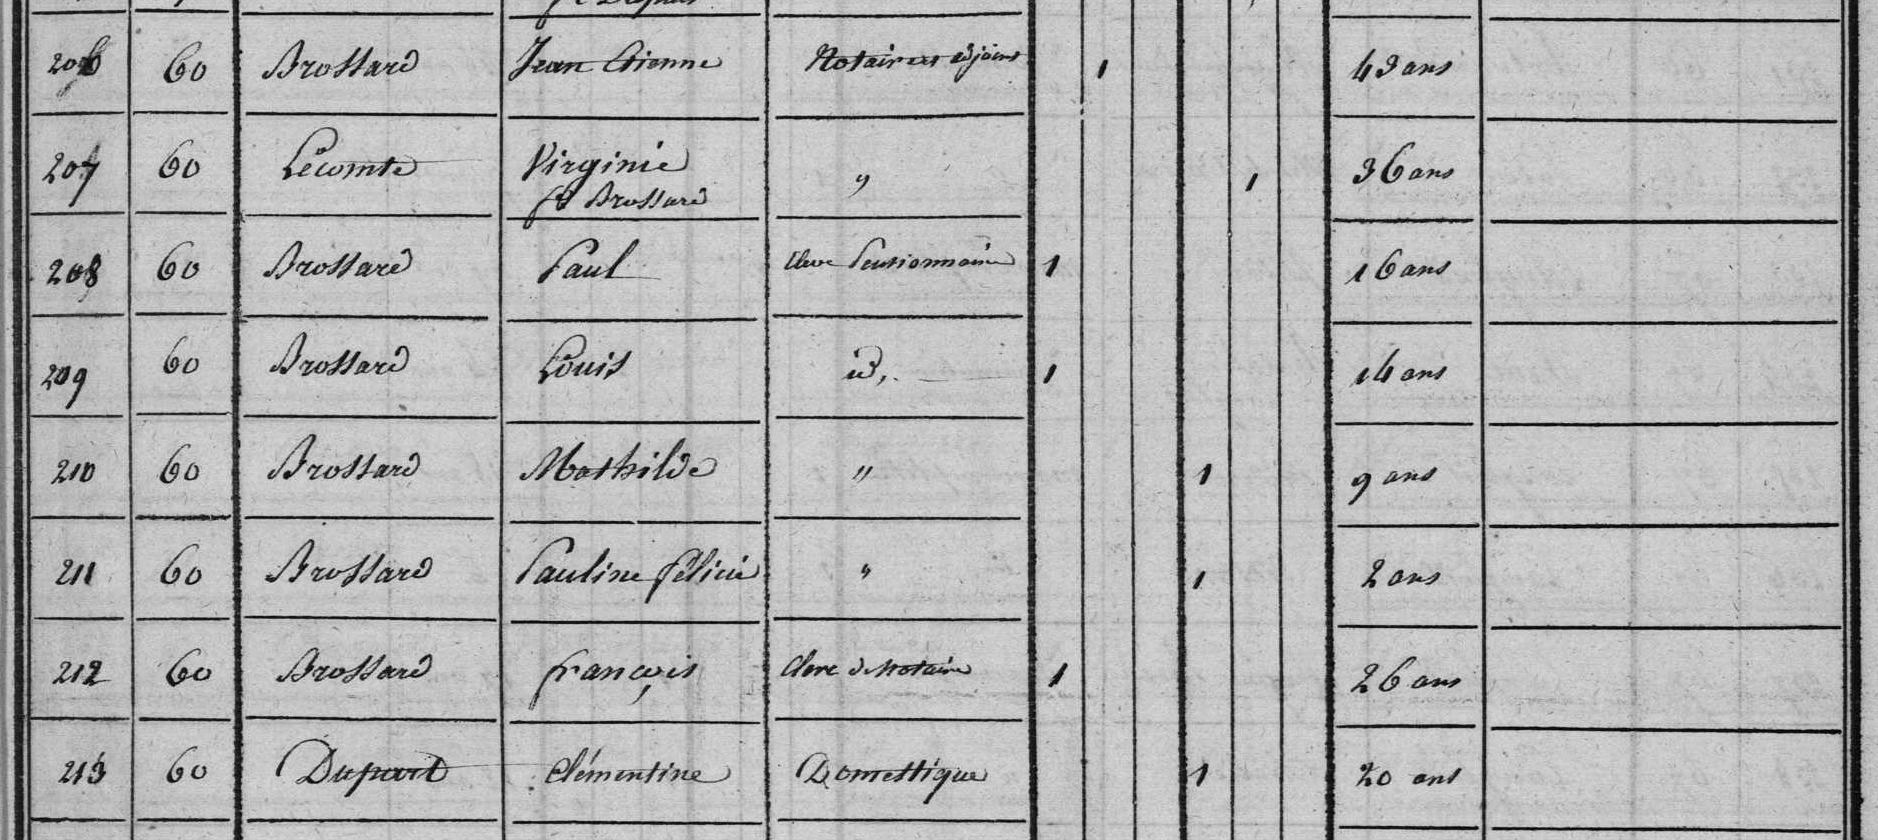 206 60 Brossard Jean Etienne Notaire et adjoint 1 43 ans
207 60 Lecomte Virginie " 1 36 ans
fe Brossard
208 60 Brossard Paul élève Pensionnaire 1 16 ans
209 60 Brossard Louis id. 1 14 ans
210 60 Brossard Mathilde " 1 9 ans
211 60 Brossard Pauline félicie " 1 2 ans
212 60 Brossard françois Clerc de Notaire 1 26 ans
213 60 Dupart Clémentine Domestique 1 20 ans